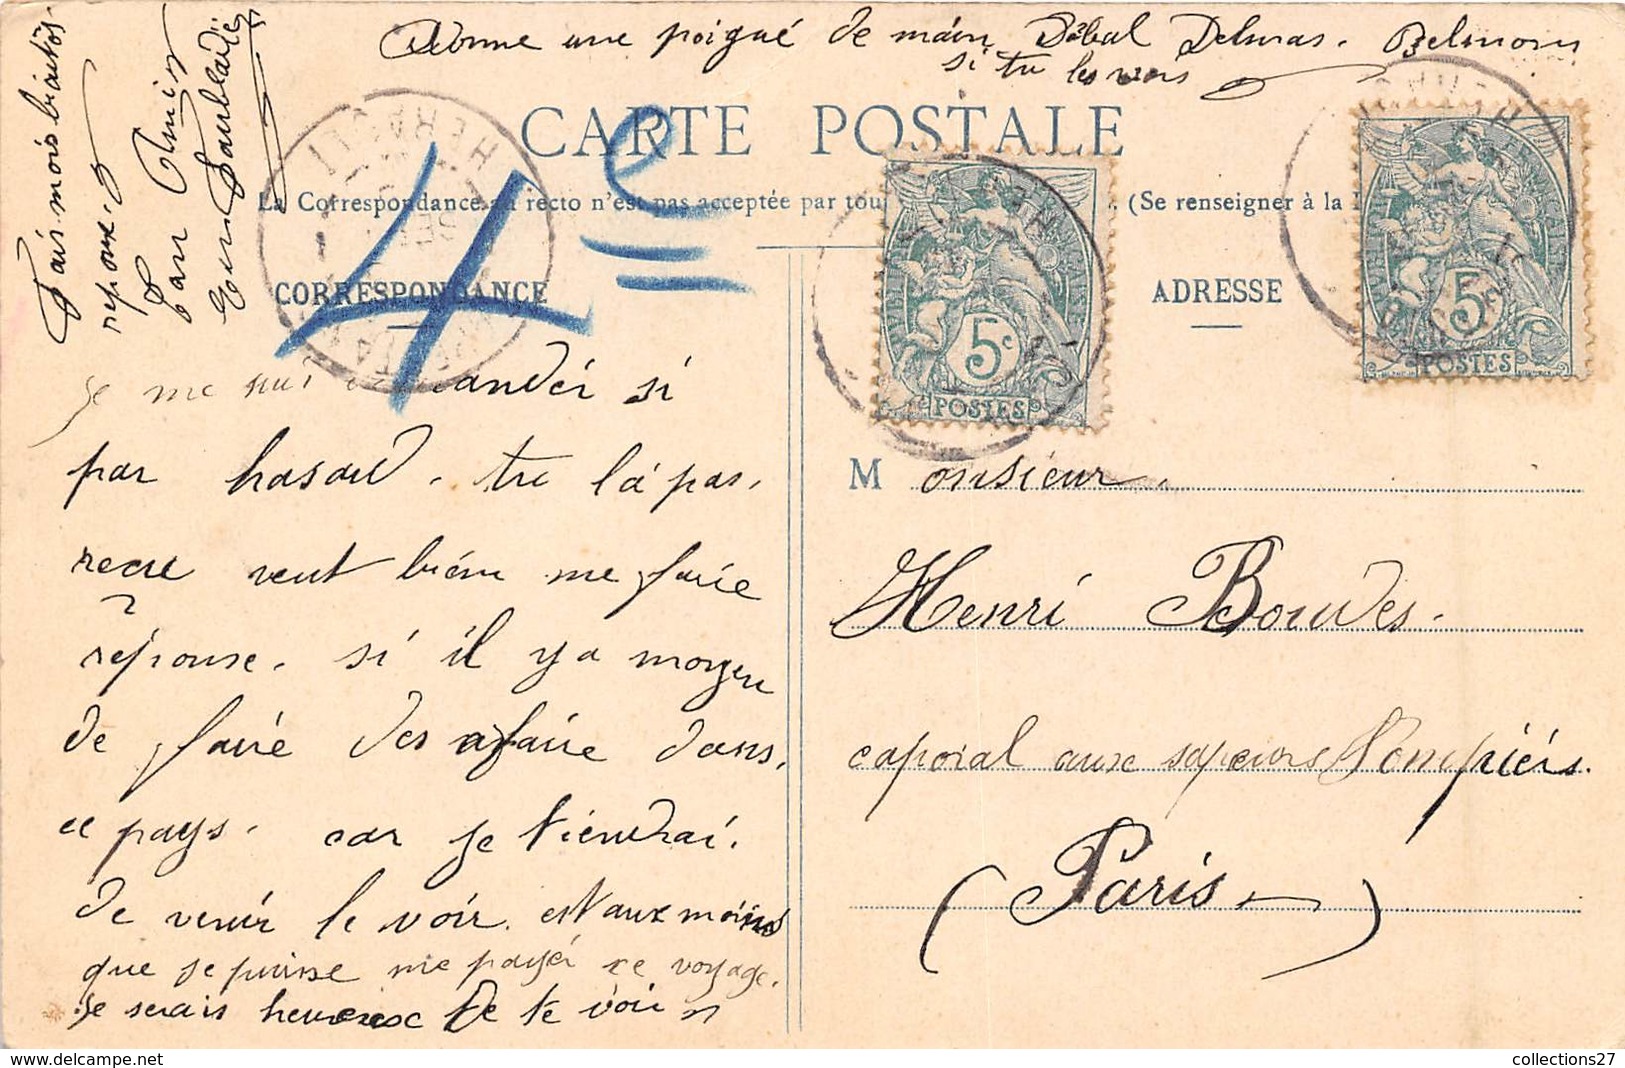 Donne une poigné de main Débal Delmas. Belmon
si tu les vois
CARTE POSTALE
La Correspondance au recto n'est pas acceptée par tou (Se renseigner à la
CORRESPONDANCE
ADRESSE
4e
HERAULT
5c
POSTES
5c
POSTES
je me sui demandér si
par hasard. tu la pas.
recu veut bién me faire
réponse. si il y a moyen
de faire des afaire dans.
ce pays. car je tiendrai.
de venir le voir. est aux moins
que je puisse me payér ce voyage.
je serais heureux De te voir
Fais mois biaitôs.
reponse.
Ton Amis
Monsieur.
Henri Boudes.
caporal aux sapeurs Pompiérs.
(Paris)
collections27